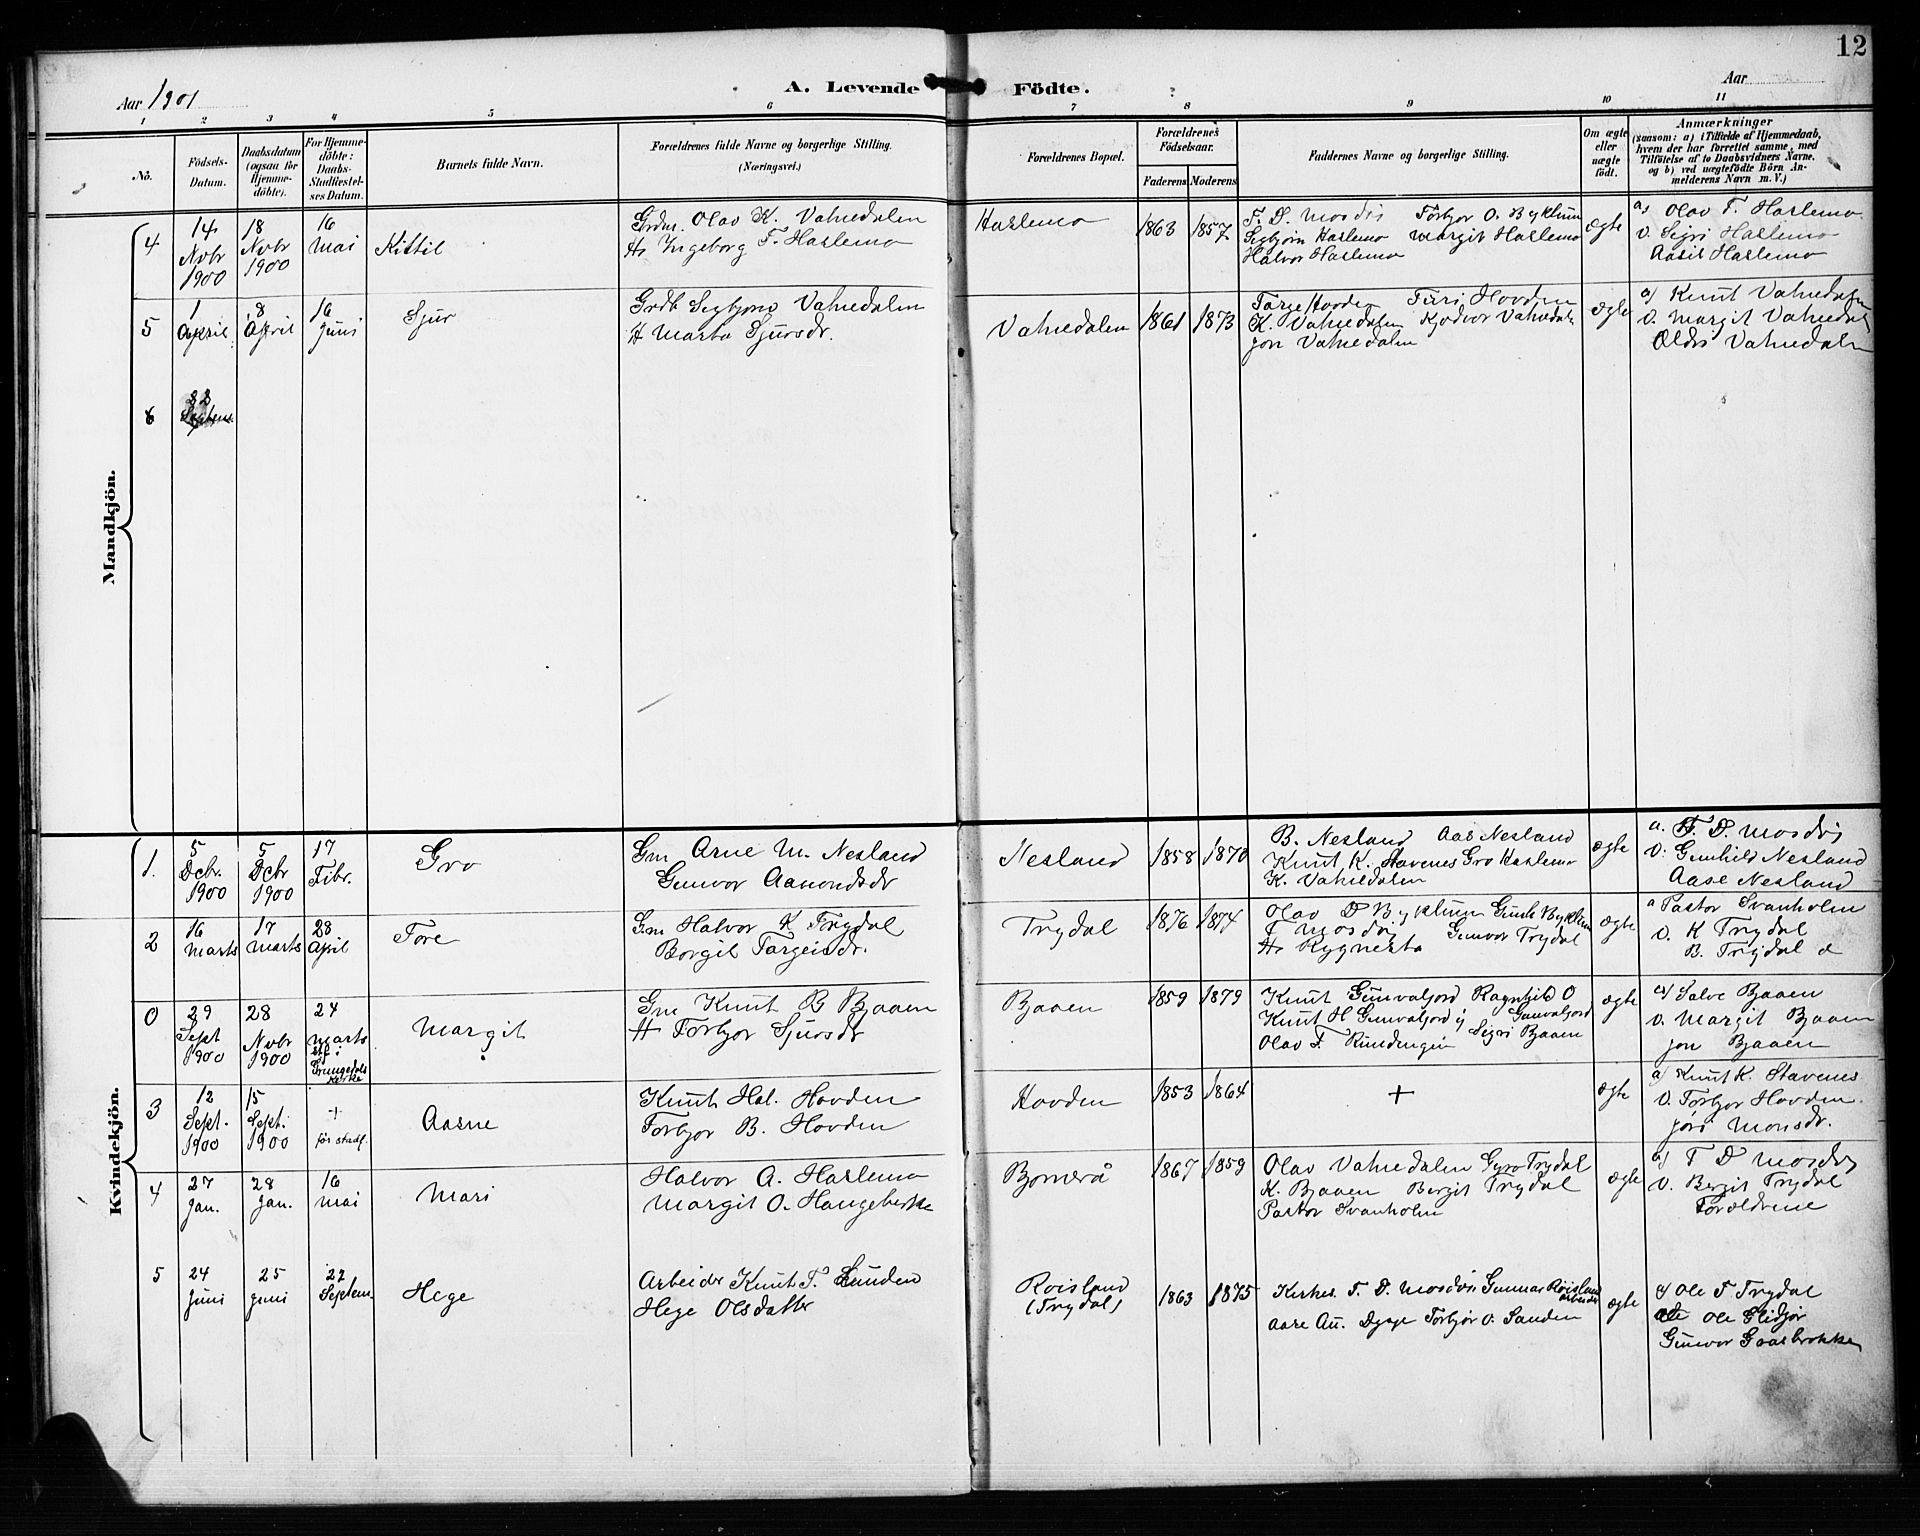 12
Aar 1901
A. Levende Födte.
Aar
1 2 3 4 5 6 7 8 9 10 11
No.
Födsels-
Datum.
Daabsdatum
(ogsaa for
Hjemme-
döbte).
For Hjemme-
döbte:
Daabs-
Stadfæstel-
ses Datum.
Barnets fulde Navn.
Forældrenes fulde Navne og borgerlige Stilling.
(Næringsvei.)
Forældrenes Bopæl.
Forældrenes
Födselsaar.
Faderens
Moderens
Faddernes Navne og borgerlige Stilling.
Om ægte
eller
uægte
født.
Anmærkninger
(saasom: a) i Tilfælde af Hjemmedaab,
hvem der har forrettet samme, med
Tilföielse af to Daabsvidners Navne,
og b) ved uægtefödte Börn An-
melderens Navn m. V.)
Mandkjön.
4
14
Nvbr
1900
18
Nvbr
1900
16
Mai
Kittil
Grdm. Olav K. Vatnedalen
H. Ingeborg T. Haslemo
Haslemo
1863
1857
T. D. Mosdöi Torbjor O. Byklum
Sigbjörn Haslemo Margit Haslemo
Halvor Haslemo
ægte
a) Olav T. Haslemo
v. Sigri Haslemo
Aasil Haslemo
5
1
April
8
April
16
Juni
Sjur
Grdb Sigbjörn Vatnedalen
H Marta Sjursdr.
Vatnedalen
1861
1873
Targe Hovden Turi Hovden
K. Vatnedalen Kjödvor Vatnedalen
Jon Vatnedalen
ægte
a) Knut Vatnedalen
v. Margit Vatnedal
Oldis Vatnedalen
6
22
Septem.
Kvindekjön.
1.
5
Dcbr.
1900
5
Dcbr
1900
17
Febr.
Gro
Gm Arne M. Nesland
Gunvor Aamondsdr
Nesland
1858
1870
B. Nesland Aas Nesland
Knut K. Stavenes Gro Haslemo
K. Vatnedalen
ægte
a. T. D. Mosdöi
v: Gunhild Nesland
Aase Nesland
2
16
Marts
17
Marts
28
April
Tore
Gm Halvor K Trydal
Borgil Targeisdr.
Trydal
1876
1874
Olav D Byklum Gunh Byklum
T Mosdöi Gunvor Trydal
H. Rygnesta
ægte
a Pastor Svanholm
v. K Trydal
B. Trydal
0
29
Sept
1900
28
Nvbr
1900
24
Marts
Grungedals
Kirke
Margit
Gm Knut B Bjaaen
H Torbjor Sjursdr
Bjaaen
1859
1879
Knut Gunvaljord Ragnhild O
Knut H Gunvaljord Gunvaljord
Olav T. Rundengen Sigri Bjaaen
ægte
a) Salve Bjaaen
v. Margit Bjaaen
Jon Bjaaen
3
12
Sept.
1900
15
Sept.
1900
+
för stadf.
Aasne
Knut Hal. Hovden
Torbjor B. Hovden
Hovden
1853
1864
+
ægte
a) Knut K. Stavenes
v. Torbjor Hovden.
Jöri Monsdr.
4
27
Jan.
28
Jan.
16
Mai
Mari
Halvor A. Haslemo
Margit O. Haugebrekke
Bjørnerå
1867
1859
Olav Vatnedalen Gyro Trydal
K. Bjaaen Bergit Trydal
Pastor Svanholm
ægte
a) T D Mosdöi
v. Bergit Trydal
Forældrene
5
24
Juni
25
Juni
22
Septem.
Hege
Arbeider Knut T. Sanden
Hege Olsdatter
Röisland
(Trydal)
1863
1875
Kirkes. T. D. Mosdöi Gunnar Röisland
arbeider
Aase Au. Dysje Torbjör O. Sanden
ægte
a) Ole T Trydal
Ole Glidjör
Gunvor Graabrokke